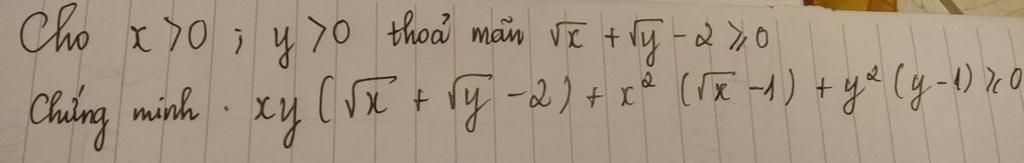 Cho x > 0 ; y > 0 thoả mãn √x + √y - 2 ≥ 0
Chứng minh . xy (√x + √y - 2) + x² (√x - 1) + y² (y - 1) ≥ 0